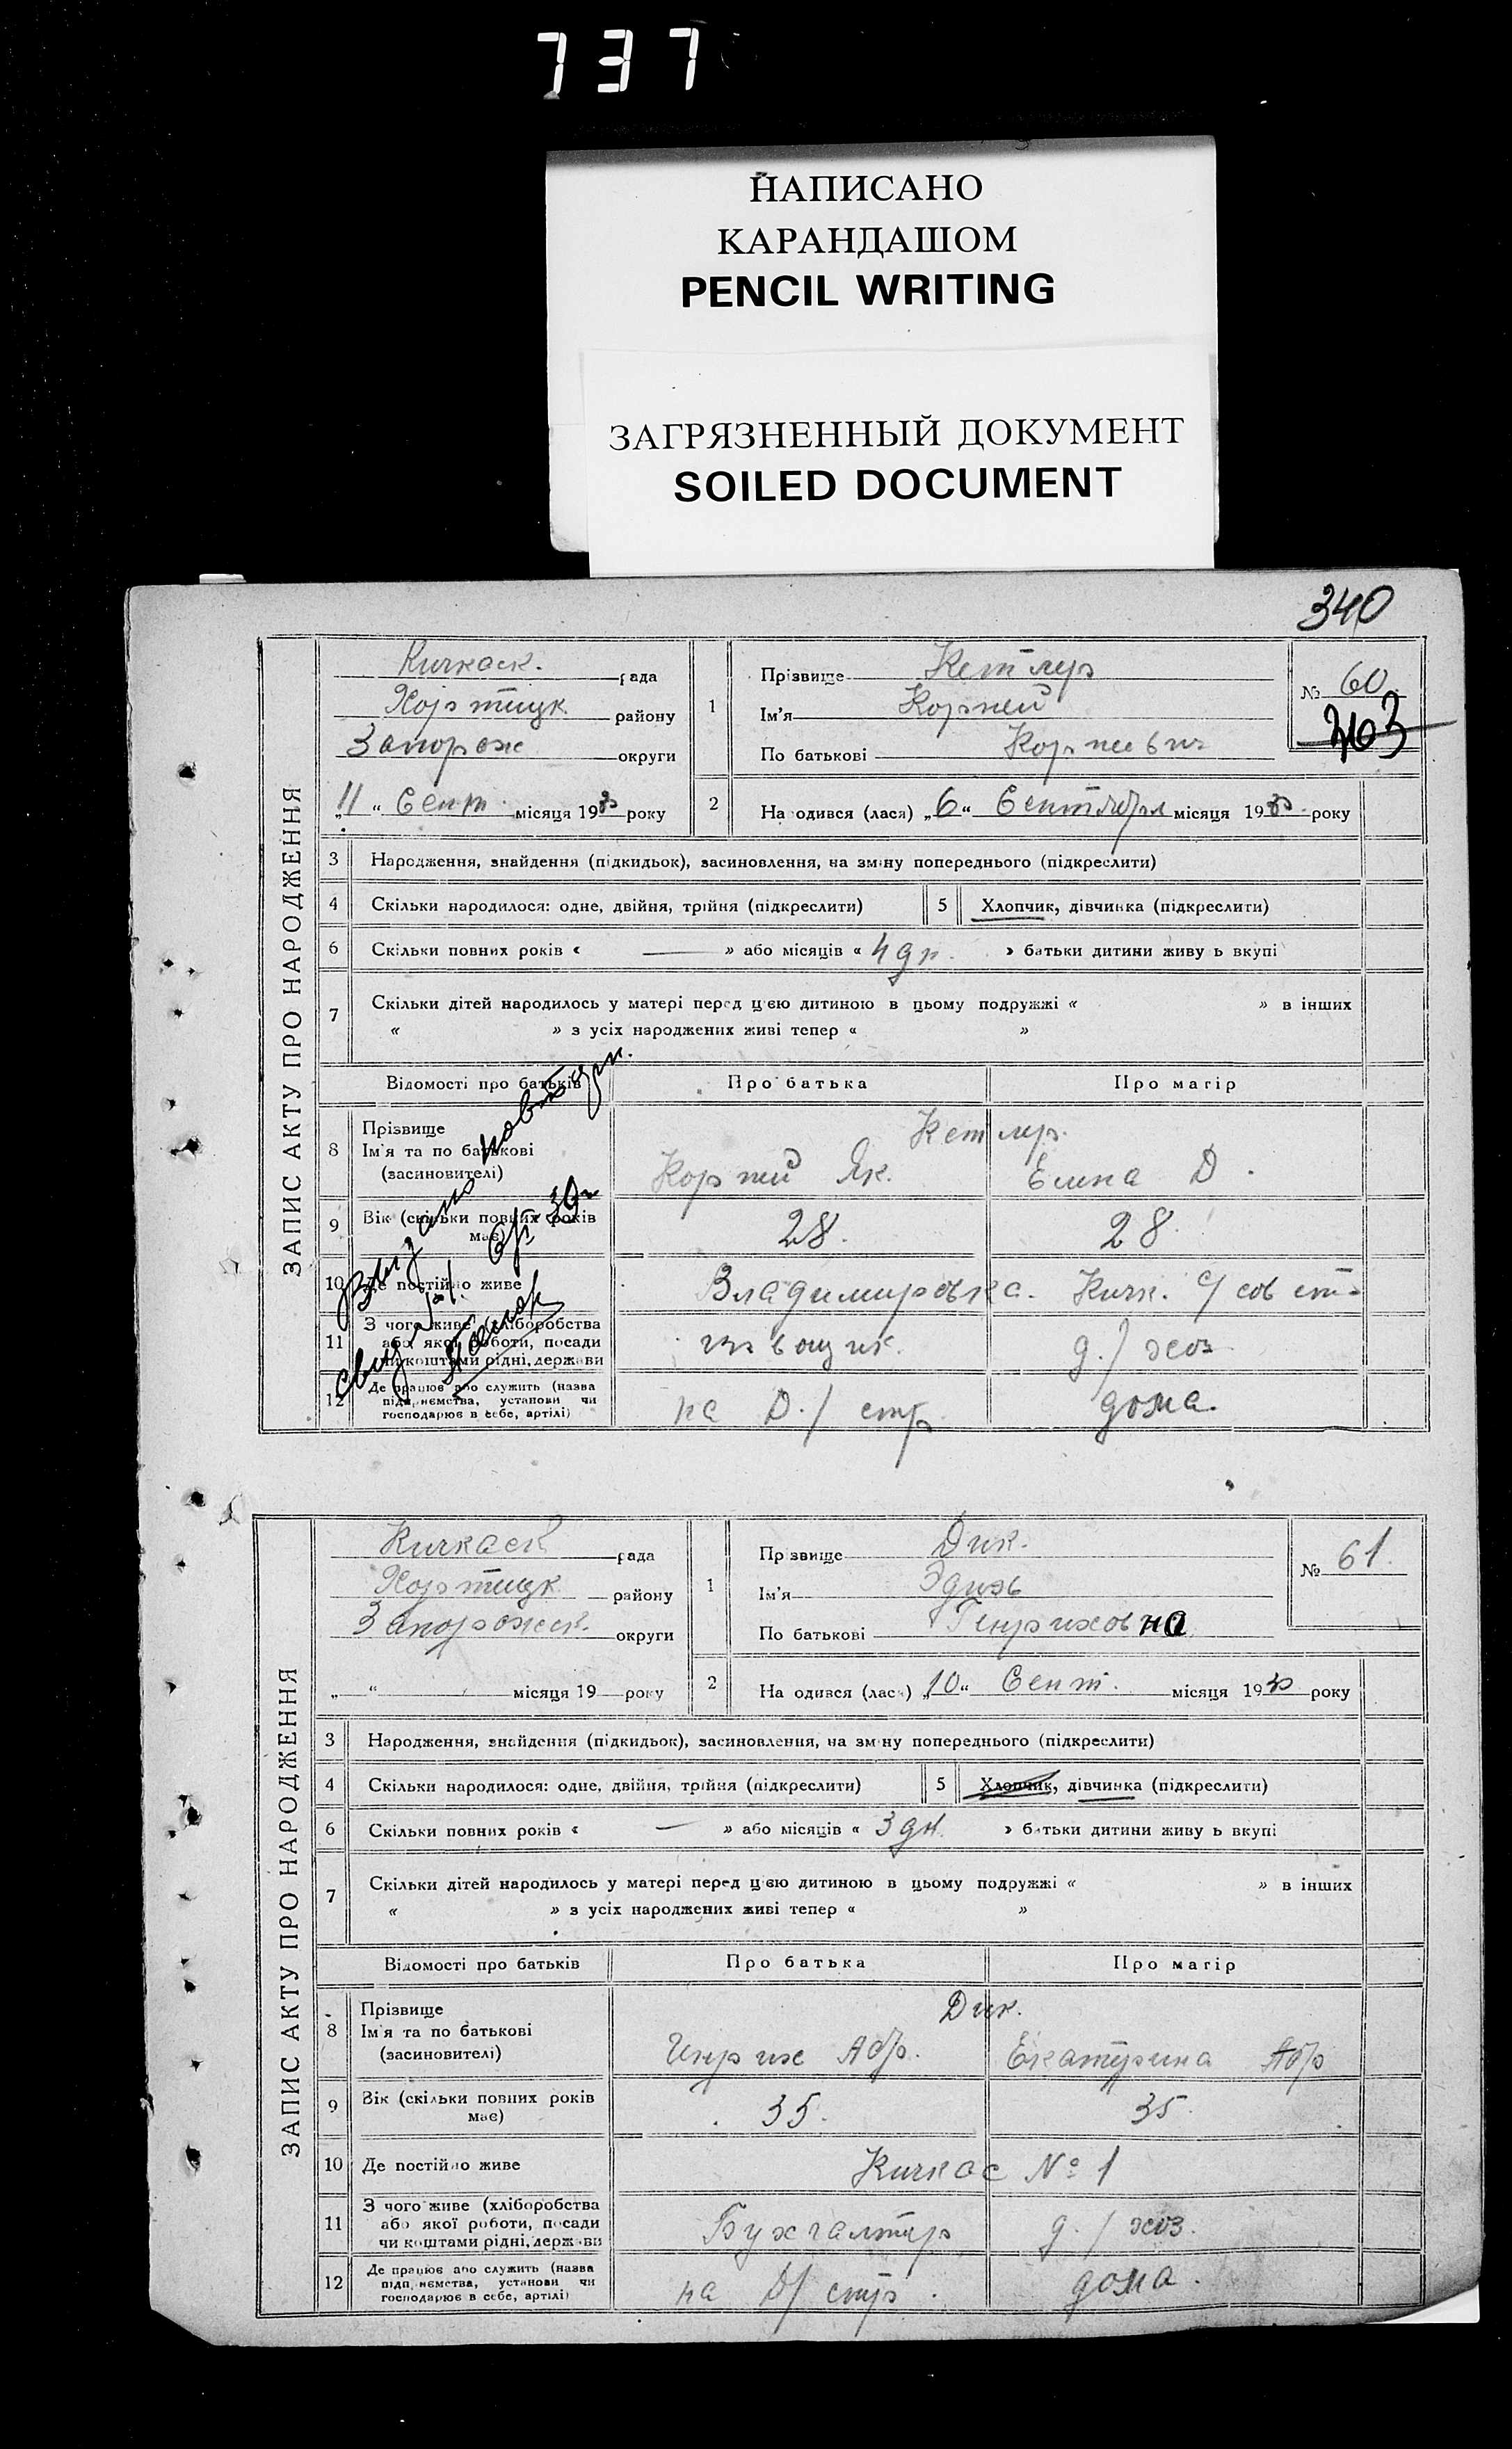 737
НАПИСАНО
КАРАНДАШОМ
PENCIL WRITING
ЗАГРЯЗНЕННЫЙ ДОКУМЕНТ
SOILED DOCUMENT
340
ЗАПИС АКТУ ПРО НАРОДЖЕННЯ
Кичкаск. рада
Хортицк району
Запорож округи
„11“ Сент. місяця 1930 року
1 Прізвище Кетлер
Ім'я Корней
По батькові Корнеевич
№ 60
2 На одився (лася) „6“ Сентября місяця 1930 року
3 Народження, знайдення (підкидьок), засиновлення, на зміну попереднього (підкреслити)
4 Скільки народилося: одне, двійня, трійня (підкреслити) 5 Хлопчик, дівчинка (підкреслити)
6 Скільки повних років « — » або місяців « 4 дн. » батьки дитини живу ь вкупі
7 Скільки дітей народилось у матері перед цією дитиною в цьому подружжі « » в інших
« » з усіх народжених живі тепер « »
Відомості про батьків Про батька Про матір
8 Прізвище
Ім'я та по батькові
(засиновителі)
Кетлер.
Корней Як. Елена Д.
9 Вік (скільки повних років
має)
28. 28
10 Де постійно живе Владимировка. Кичк. с/сов
11 З чого живе (хліборобства
або якої роботи, посади
чи коштами рідні, держави
извощик. д./хоз
12 Де працює або служить (назва
підприємства, установи чи
господарює в себе, артілі)
на Д./стр дома.
Выдано повторн.
ЗАПИС АКТУ ПРО НАРОДЖЕННЯ
Кичкаск рада
Хортицк району
Запорожск. округи
„ “ місяця 19 року
1 Пр звище Дик.
Ім'я
По батькові Генриховна
№ 61.
2 На одився (лася) „10“ Сент. місяця 1930 року
3 Народження, знайдення (підкидьок), засиновлення, на зміну попереднього (підкреслити)
4 Скільки народилося: одне, двійня, трійня (підкреслити) 5 Хлопчик, дівчинка (підкреслити)
6 Скільки повних років « — » або місяців « 3 дн. » батьки дитини живу ь вкупі
7 Скільки дітей народилось у матері перед цією дитиною в цьому подружжі « » в інших
« » з усіх народжених живі тепер « »
Відомості про батьків Про батька Про матір
8 Прізвище
Ім'я та по батькові
(засиновителі)
Дик.
Генрих Абр. Екатерина Абр
9 Вік (скільки повних років
має)
35. 35.
10 Де постійно живе Кичкас № 1
11 З чого живе (хліборобства
або якої роботи, посади
чи коштами рідні, держави
Бухгалтер д./хоз.
12 Де працює або служить (назва
підприємства, установи чи
господарює в себе, артілі)
на Д/стр. дома.